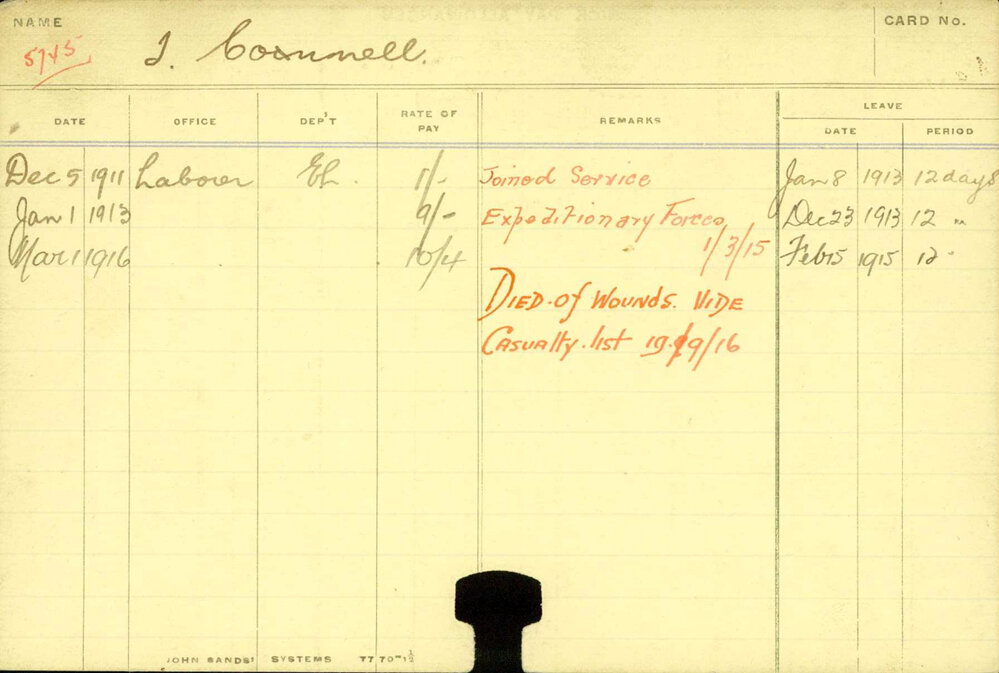 NAME
CARD No.
5745
J. Cornwell.
DATE OFFICE DEP'T RATE OF PAY REMARKS LEAVE
DATE PERIOD
Dec 5 1911 Laborer EL. 1/- Joined Service Jan 8 1913 12 days
Jan 1 1913 9/- Expeditionary Forces Dec 23 1913 12 "
1/3/15
Mar 1 1916 10/4 Feb 15 1915 12 "
DIED of WOUNDS. VIDE
CASUALTY. list 19/9/16
JOHN SANDS' SYSTEMS